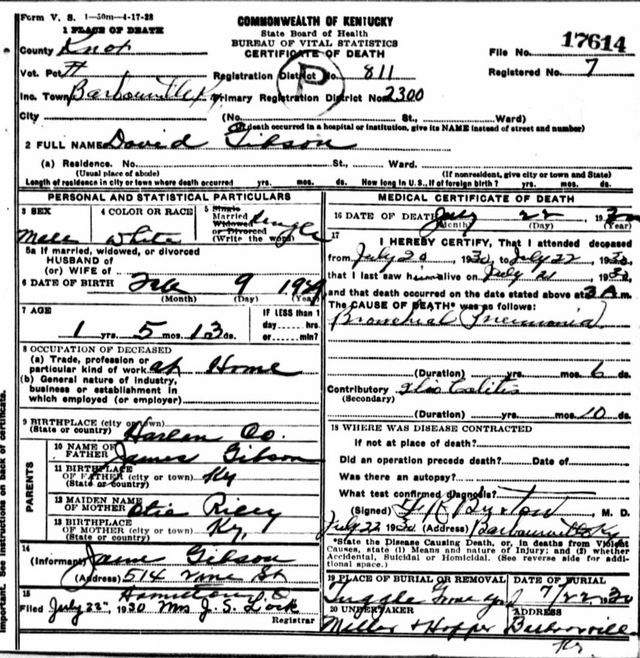 Form V. S. 1-50m-4-17-28
COMMONWEALTH OF KENTUCKY
State Board of Health
BUREAU OF VITAL STATISTICS
CERTIFICATE OF DEATH
1 PLACE OF DEATH
County Knox
File No. 17614
Vot. Pct
Registration District No. 811
Registered No. 7
P
Inc. Town Barbourville Ky Primary Registration District No. 2300
City (No. St., Ward)
(If death occurred in a hospital or institution, give its NAME instead of street and number)
2 FULL NAME David Gibson
(a) Residence. No. St., Ward.
(Usual place of abode) (If nonresident, give city or town and State)
Length of residence in city or town where death occurred yrs. mos. ds. How long in U. S., if of foreign birth? yrs. mos. ds.
PERSONAL AND STATISTICAL PARTICULARS
3 SEX 4 COLOR OR RACE 5 Single Married Widowed or Divorced (Write the word) Single
Male White
5a If married, widowed, or divorced
HUSBAND of
(or) WIFE of
6 DATE OF BIRTH 9 1929
(Month) (Day) (Year)
7 AGE IF LESS than 1
day hrs.
1 yrs. 5 mos. 13 ds. or min.
8 OCCUPATION OF DECEASED
(a) Trade, profession or
particular kind of work at Home
(b) General nature of industry,
business or establishment in
which employed (or employer)
9 BIRTHPLACE (city or town)
(State or country) Harlan Co.
PARENTS
10 NAME OF
FATHER James Gibson
11 BIRTHPLACE
OF FATHER (city or town) Ky
(State or country)
12 MAIDEN NAME
OF MOTHER Riley
13 BIRTHPLACE
OF MOTHER (city or town) Ky.
(State or country)
14
(Informant) Gibson
(Address) 514 Vine St
Hamilton, O
15
Filed July 22", 1930 Mrs J. S. Lock
Registrar
MEDICAL CERTIFICATE OF DEATH
16 DATE OF DEATH July 22 1930
(Month) (Day) (Year)
17
I HEREBY CERTIFY, That I attended deceased
from July 20, 1930, to July 22, 1930,
that I last saw him alive on July 21, 1930,
and that death occurred on the date stated above at 3 A m.
The CAUSE OF DEATH* was as follows:
Bronchial Pneumonia
(Duration) yrs. mos. 6 ds.
Contributory Ilio Colitis
(Secondary)
(Duration) yrs. mos. 10 ds.
18 WHERE WAS DISEASE CONTRACTED
If not at place of death?
Did an operation precede death? Date of
Was there an autopsy?
What test confirmed diagnosis?
(Signed) M. D.
July 22 1930 (Address) Barbourville Ky
*State the Disease Causing Death, or, in deaths from Violent
Causes, state (1) Means and nature of Injury; and (2) whether
Accidental, Suicidal or Homicidal. (See reverse side for addi-
tional space.)
19 PLACE OF BURIAL OR REMOVAL DATE OF BURIAL
Tuggle 7/22 30
20 UNDERTAKER ADDRESS
Miller & Hopper Barbourville
Ky
Important. See instructions on back of certificate.